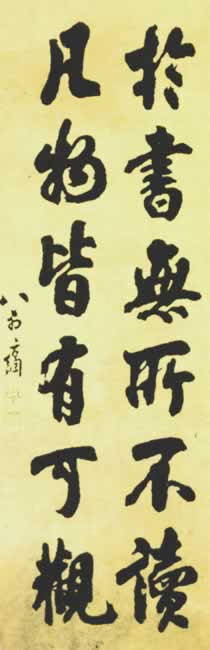 於書無所不讀
凡物皆有可觀